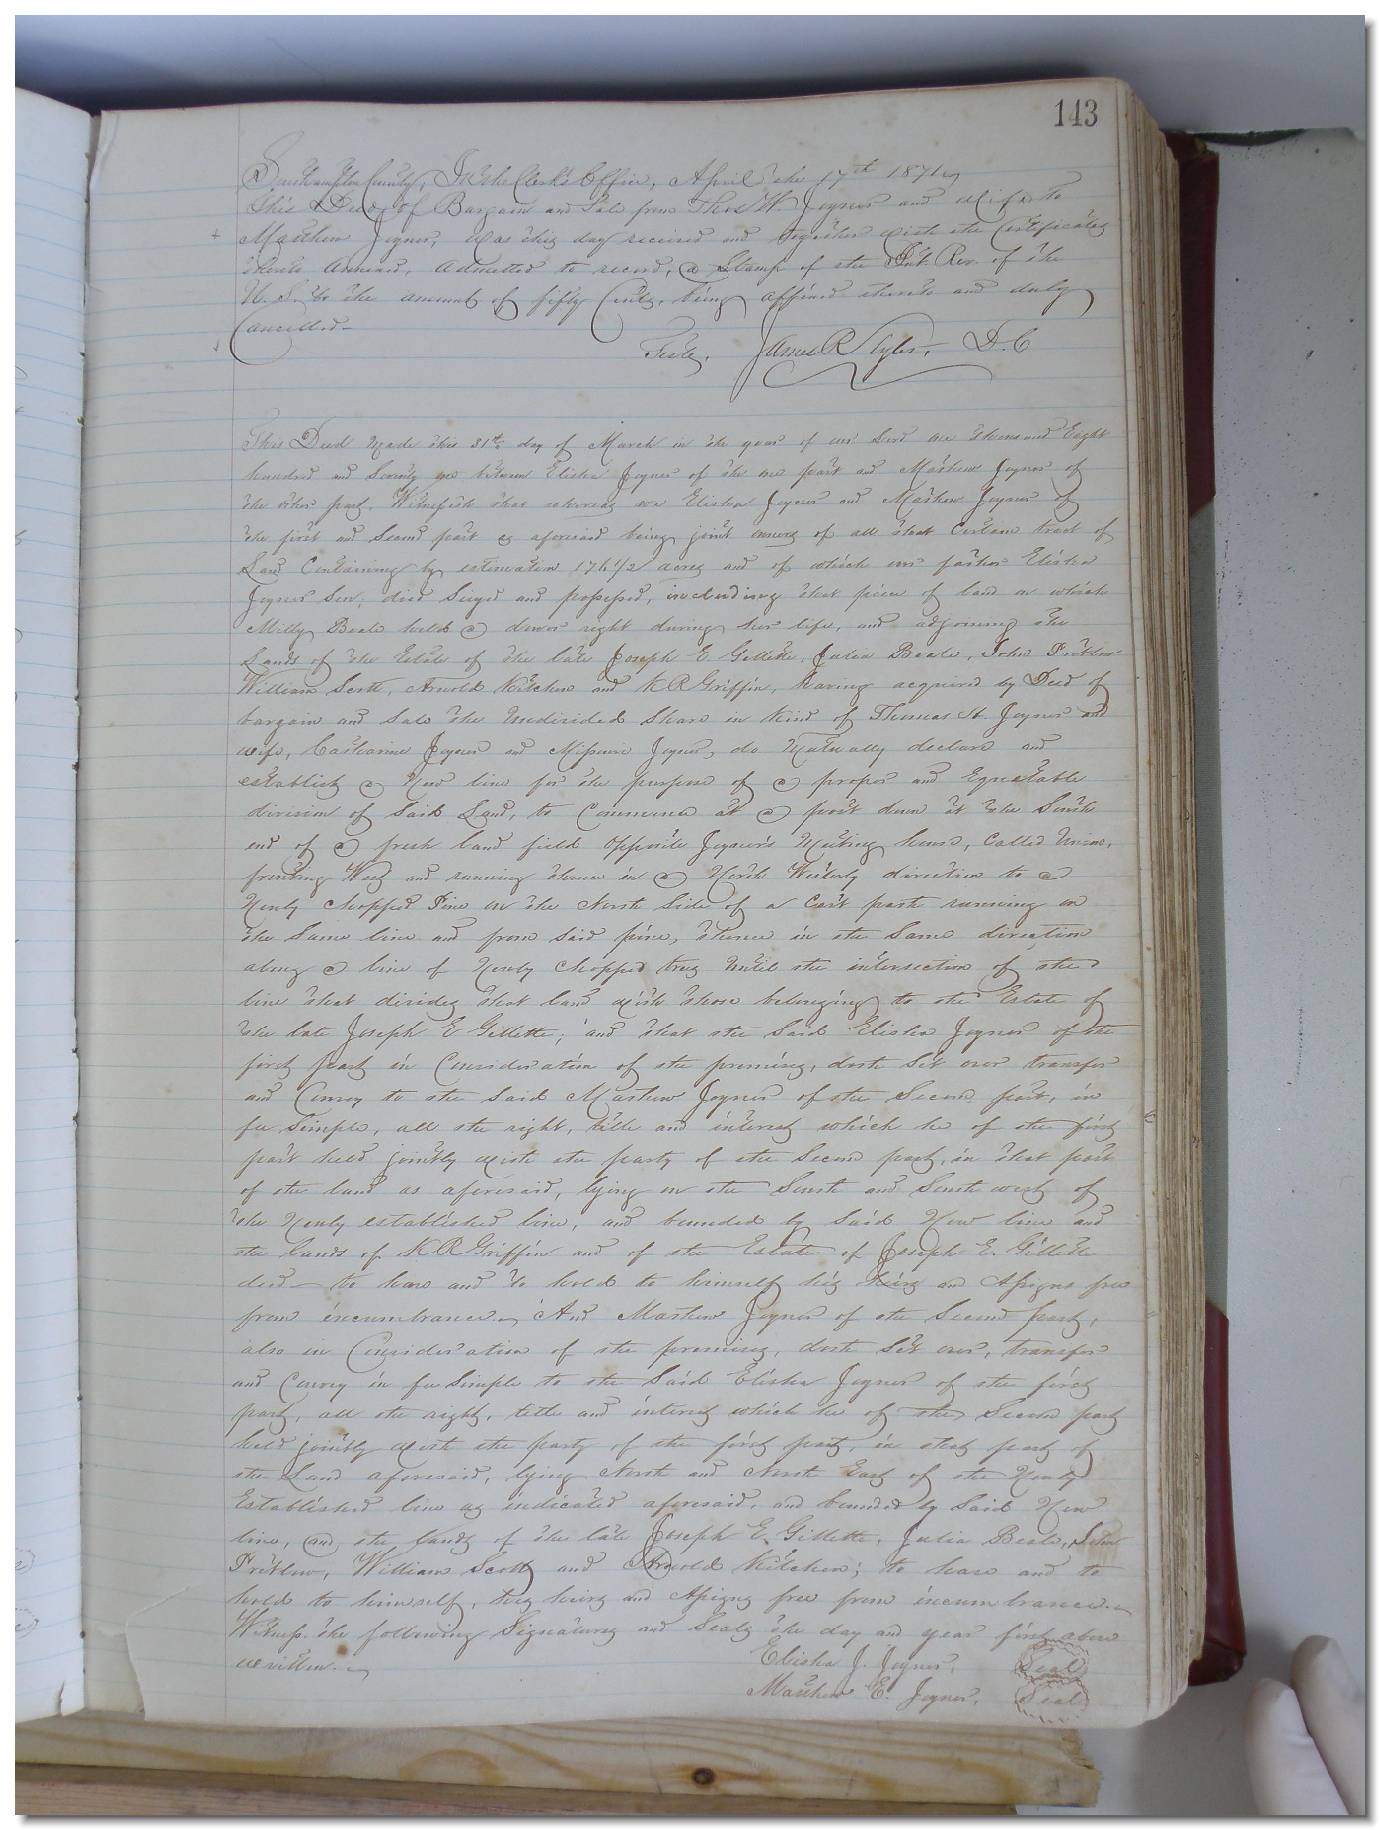 143
Southampton County, In the Clerk's Office, April the 17th 1871
This Deed of Bargain and Sale from Thos W. Joyner and Wife to
Matthew Joyner, was this day received and together with the Certificates
thereto annexed, admitted to record, a Stamp of the Int. Rev. of the
U. S. to the amount of fifty Cents, being affixed thereto and duly
Cancelled
Teste, James R Tyler, D. C
This Deed Made this 31st day of March in the year of our Lord one thousand Eight
hundred and Seventy one between Elisha Joyner of the one part and Mathew Joyner of
the other part, Witnesseth that whereas we Elisha Joyner and Mathew Joyner of
the first and Second part as aforesaid being joint owners of all that Certain tract of
Land Containing by estimation 176 1/2 acres and of which our father Elisha
Joyner Sen, died Seized and possessed, including that piece of land on which
Milly Beale held a dower right during her life, and adjoining the
Lands of the Estate of the late Joseph E Gillette, Julia Beale, John Pretlow
William Scott, Arnold Kitchen and K R Griffin, having acquired by Deed of
bargain and Sale the Undivided Share in Kind of Thomas Joyner and
wife, Catharine Joyner and Missouri Joyner, do Mutually declare and
establish a New line for the purpose of a proper and Equitable
division of Said Land, to Commence at a post down at the South
end of a fresh land field Opposite Joyner's Meeting house, Called Union,
fronting West and running thence in a North Westerly direction to a
Newly Chopped Pine on the North Side of a Cart path running on
the Same line and from Said pine, thence in the Same direction
along a line of Newly Chopped trees Until the intersection of the
line that divides that land with those belonging to the Estate of
the late Joseph E Gillette; and that the Said Elisha Joyner of the
first part in Consideration of the premises, doth Set over transfer
and Convey to the Said Mathew Joyner of the Second part, in
fee Simple, all the right, title and interest which he of the first
part held jointly with the party of the Second part, in that part
of the land as aforesaid, lying on the South and South west of
the Newly established line, and bounded by Said New line and
the lands of K R Griffin and of the Estate of Joseph E. Gillette
decd to have and to hold to himself his heirs and Assigns free
from incumbrance. And Mathew Joyner of the Second part,
also in Consideration of the premises, doth Set over, transfer
and Convey in fee Simple to the Said Elisha Joyner of the first
part, all the right, title and interest which he of the Second part
held jointly with the party of the first part, in that part of
the Land aforesaid, lying North and North East of the Newly
Established line as indicated aforesaid, and bounded by Said New
line, and the lands of the late Joseph E. Gillette, Julia Beale, John
Pretlow, William Scott and Arnold Kitchen; to have and to
hold to himself, his heirs and Assigns free from incumbrance.
Witness the following Signatures and Seals the day and year first above
written.
Elisha J. Joyner, Seal
Mathew E. Joyner, Seal